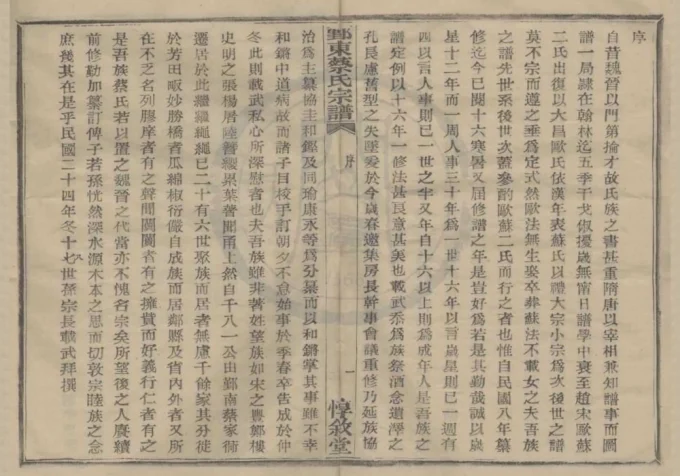 序
自昔魏晉以門第掄才故氏族之書甚重隋唐以宰相兼知譜事而圖
譜一局隷在翰林迄五季干戈俶擾歲無甯日譜學中衰至趙宋歐蘇
二氏出復以大昌歐氏依漢年表蘇氏以禮大宗小宗爲次後世之譜
莫不宗而遵之垂爲定式然歐法無生娶卒葬蘇法不載女之夫吾族
之譜先世系後世次蓋參酌歐蘇二氏而行之者也惟自民國八年纂
修迄今已閱十六寒暑又屆修譜之年是豈好爲若是其勤哉誠以歲
星十二年而一周人事三十年爲一世十六年以言歲星則已一週有
四以言人事則已一世之半又年自十六以上則爲成年人是吾族之
譜定例以十六年一修法甚良意甚美也載武忝爲族祭酒念遺澤之
孔長慮舊型之失墜爰於今歲春邀集房長幹事會議重修乃延族協
鄞東蔡氏宗譜
序
一
惇敘堂
治爲主纂協圭和鏘及同瑜康永等爲分纂而以和鏘掌其事雖不幸
和鏘中道病故而諸子目校手訂朝夕不怠始事於季春卒告成於仲
冬此則載武私心所深慰者也夫吾族雖非著姓望族如宋之豐鄭樓
史明之張楊屠陸簪纓累葉聲聞甬上然自千八一公由鄞南蔡家衕
遷居於此繼繼繩繩已二十有六世聚族而居者無慮千餘家其分徙
於芳田畈妙勝橋者瓜緜椒衍儼自成族而居鄰縣及省內外者又所
在不乏名列膠庠者有之聲聞闤闠者有之擁貲而好義行仁者有之
是吾族蔡氏若以置之魏晉之代當亦不愧名宗矣所望後之人賡續
前修勤加纂訂俾子若孫恍然深水源木本之思而切敦宗睦族之念
庶幾其在是乎民國二十四年冬十八世孫宗長載武拜撰